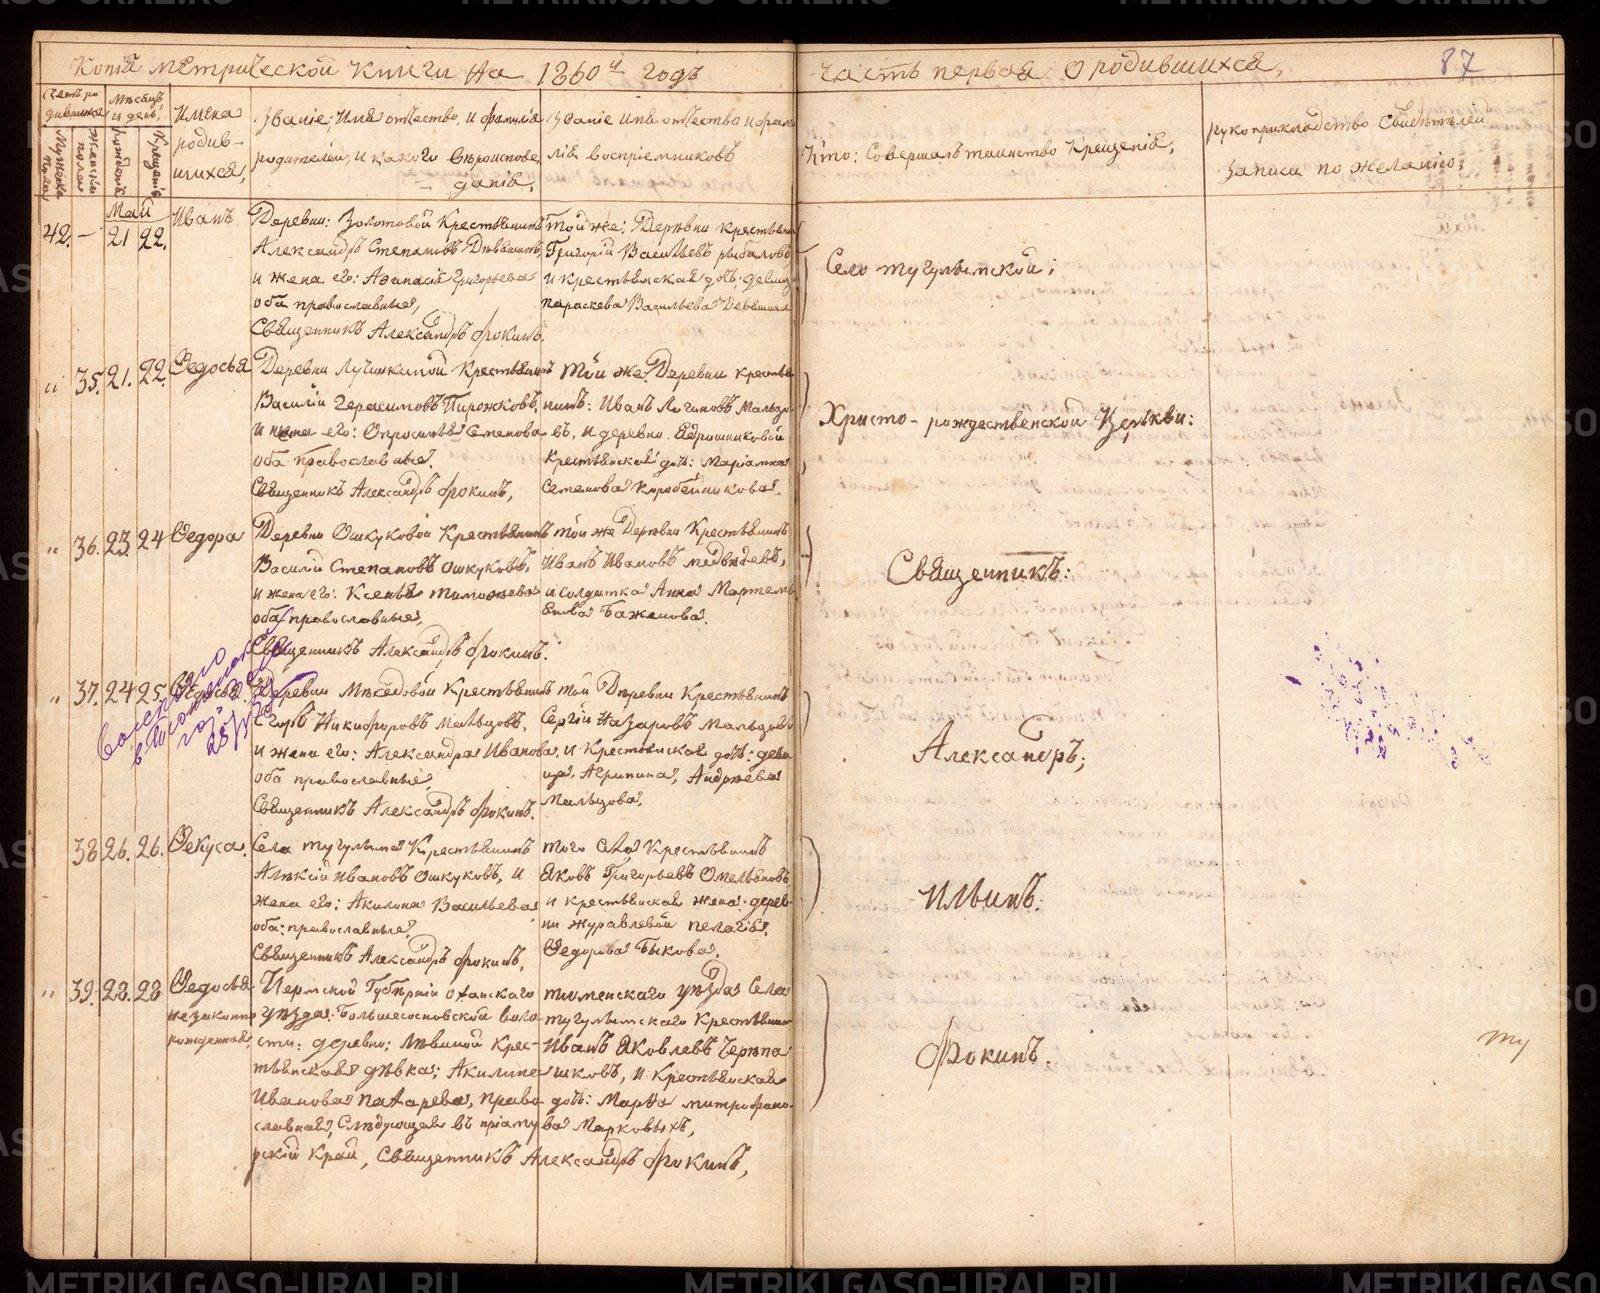 Копiя метрической Книги на 1860й годъ
часть первая о родившихся,
87
Счетъ ро
дившихся
Мѣсяцъ
и день,
Имена
родив-
шихся,
Званiе, Имя отчество, и фамилiя
родителей, и какого вѣроисповѣ,
данiя,
Званiе имя отчество и фами
лiя воспрiемниковъ
Кто: Совершалъ таинство Крещенiя,
рукоприкладство Свидѣтелей
Записи по желанiю,
Мужеска
полъ
Женска
полъ
рожденiя
Крещенiя
Май
42. — 21 22.
Иванъ
Деревни: Золотовой Крестьянинъ
Александръ Степановъ
и жена его: Афанасiя Григорьева
оба православные,
Священникъ Александръ Фокинъ.
Той же: Деревни крестьян
Григорiй Васильевъ рыбаловъ
и крестьянская дочь девица
параскева Васильева
" 35. 21. 22.
Федосья
Деревни Лучинкиной Крестьянинъ
Василiй Герасимовъ Пирожковъ,
и жена его: Опросинья Семенова
оба православные.
Священникъ Александръ Фокинъ,
Той же Деревни крестья
нинъ: Иванъ Логиновъ Мальцо-
въ, и деревни Ядрышниковой
Крестьянской дочь: Марiамна
Семенова Коробейникова.
" 36. 23. 24
Федора
Деревни Ошкуковой Крестьянинъ
Василiй Степановъ Ошкуковъ,
и жена его: Ксенья Тимофеева
оба православные,
Священникъ Александръ Фокинъ.
той же Деревни Крестьянинъ
Иванъ Ивановъ медвѣдевъ,
и солдатка Анна Мартемь
янова Баженова.
" 37. 24 25.
Федосья
Деревни Мѣхедовой Крестьянинъ
Егоръ Никифоровъ Мальцовъ,
и жена его: Александра Иванова,
оба православные,
Священникъ Александръ Фокинъ.
той Деревни Крестьянинъ
Сергiй Назаровъ Мальцовъ
и Крестьянская дочь: деви
ца, Агрипина, Андреева
Мальцова.
38 26. 26.
Фекуса.
Села тугулыма Крестьянинъ
Алексiй Ивановъ Ошкуковъ, и
жена его: Акилина Васильева
оба: православные,
Священникъ Александръ Фокинъ.
того села Крестьянинъ
Яковъ Григорьевъ Омельяновъ,
и крестьянская жена: дерев-
ни журавлевой пелагiя
Федорова Быкова.
" 39. 28. 28
Федосья
незаконно
рожденная,
Пермской Губернiи Оханскаго
уѣзда: Большесосновской воло-
сти: деревни; Левиной Крес-
тьянская дѣвка; Акилина
Ивановна Пахарева, право-
славная, Слѣдующая въ прiаму
рскiй Край, Священникъ Александръ Фокинъ,
тюменскаго уѣзда Села
тугулымскаго Крестьянин
Иванъ Яковлевъ Черепа
шковъ, и Крестьянская
дочь: Марфа митрофано-
ва Марковыхъ,
Село тугулымской;
Христо-рождественской Церкви:
Священникъ:
Александръ;
Ильинъ.
Фокинъ.
METRIKI.GASO-URAL.RU